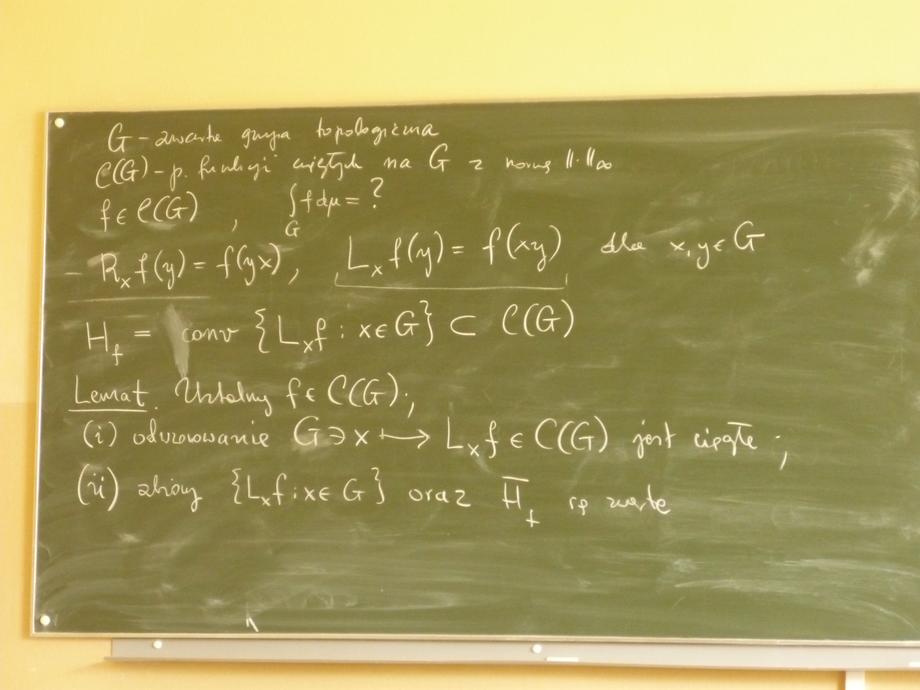 G - zwarta grupa topologiczna
C(G) - p. funkcji ciągłych na G z normą ||·||∞
f ∈ C(G) , ∫_G f dμ = ?
R_x f(y) = f(yx), L_x f(y) = f(xy) dla x, y ∈ G
H_f = conv {L_x f : x ∈ G} ⊂ C(G)
Lemat. Ustalmy f ∈ C(G);
(i) odwzorowanie G ∋ x ↦ L_x f ∈ C(G) jest ciągłe;
(ii) zbiory {L_x f : x ∈ G} oraz H̅_f są zwarte